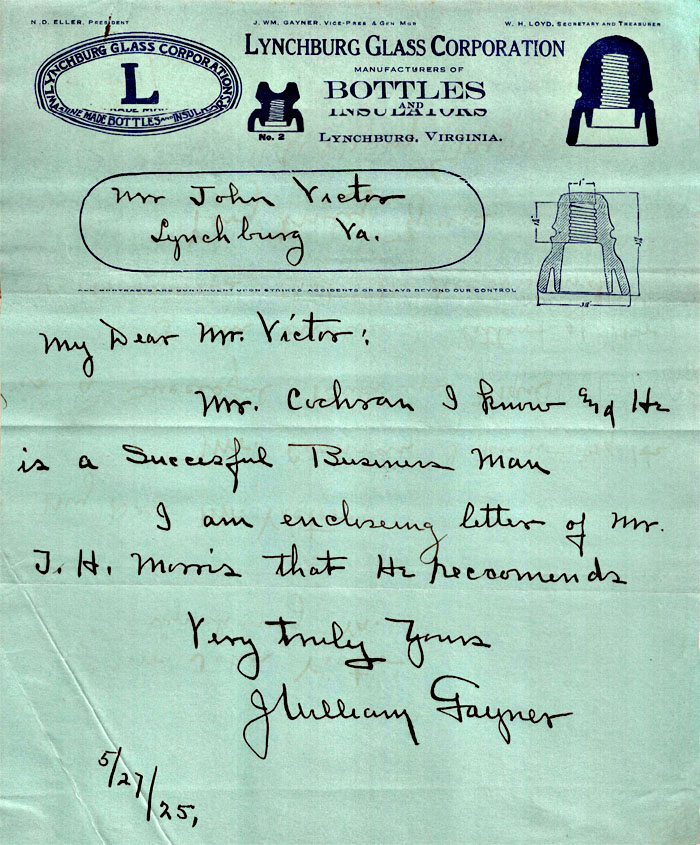 N. D. ELLER, PRESIDENT
J. WM. GAYNER, VICE-PRES & GEN MGR
W. H. LOYD, SECRETARY AND TREASURER
LYNCHBURG GLASS CORPORATION
L
TRADE MARK
MACHINE MADE BOTTLES AND INSULATORS
LYNCHBURG GLASS CORPORATION
MANUFACTURERS OF
BOTTLES
AND
INSULATORS
LYNCHBURG, VIRGINIA.
No. 2
Mr John Victor
Lynchburg Va.
ALL CONTRACTS ARE CONTINGENT UPON STRIKES, ACCIDENTS OR DELAYS BEYOND OUR CONTROL
My Dear Mr. Victor:
Mr. Cochran I know and He
is a Succesful Business Man
I am encloseing letter of Mr.
J. H. Morris that He reccomends
Very truly Yours
J William Gayner
5/27/25,